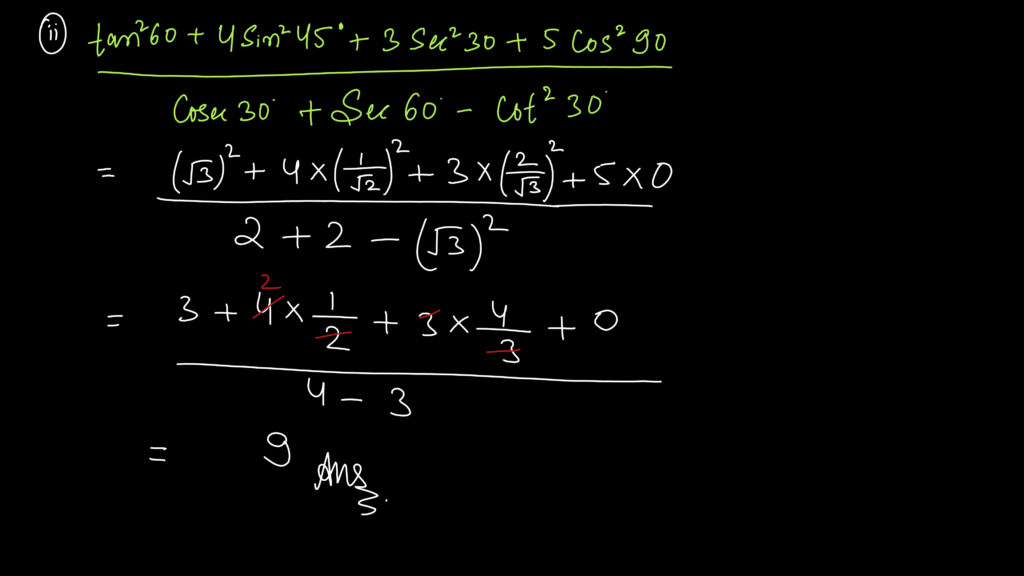 (ii) tan²60 + 4 Sin² 45° + 3 Sec² 30 + 5 Cos² 90
Cosec 30° + Sec 60° - Cot² 30°
= (√3)² + 4 × (1/√2)² + 3 × (2/√3)² + 5 × 0
2 + 2 - (√3)²
2
= 3 + 4 × 1/2 + 3 × 4/3 + 0
4 - 3
= 9 Ans